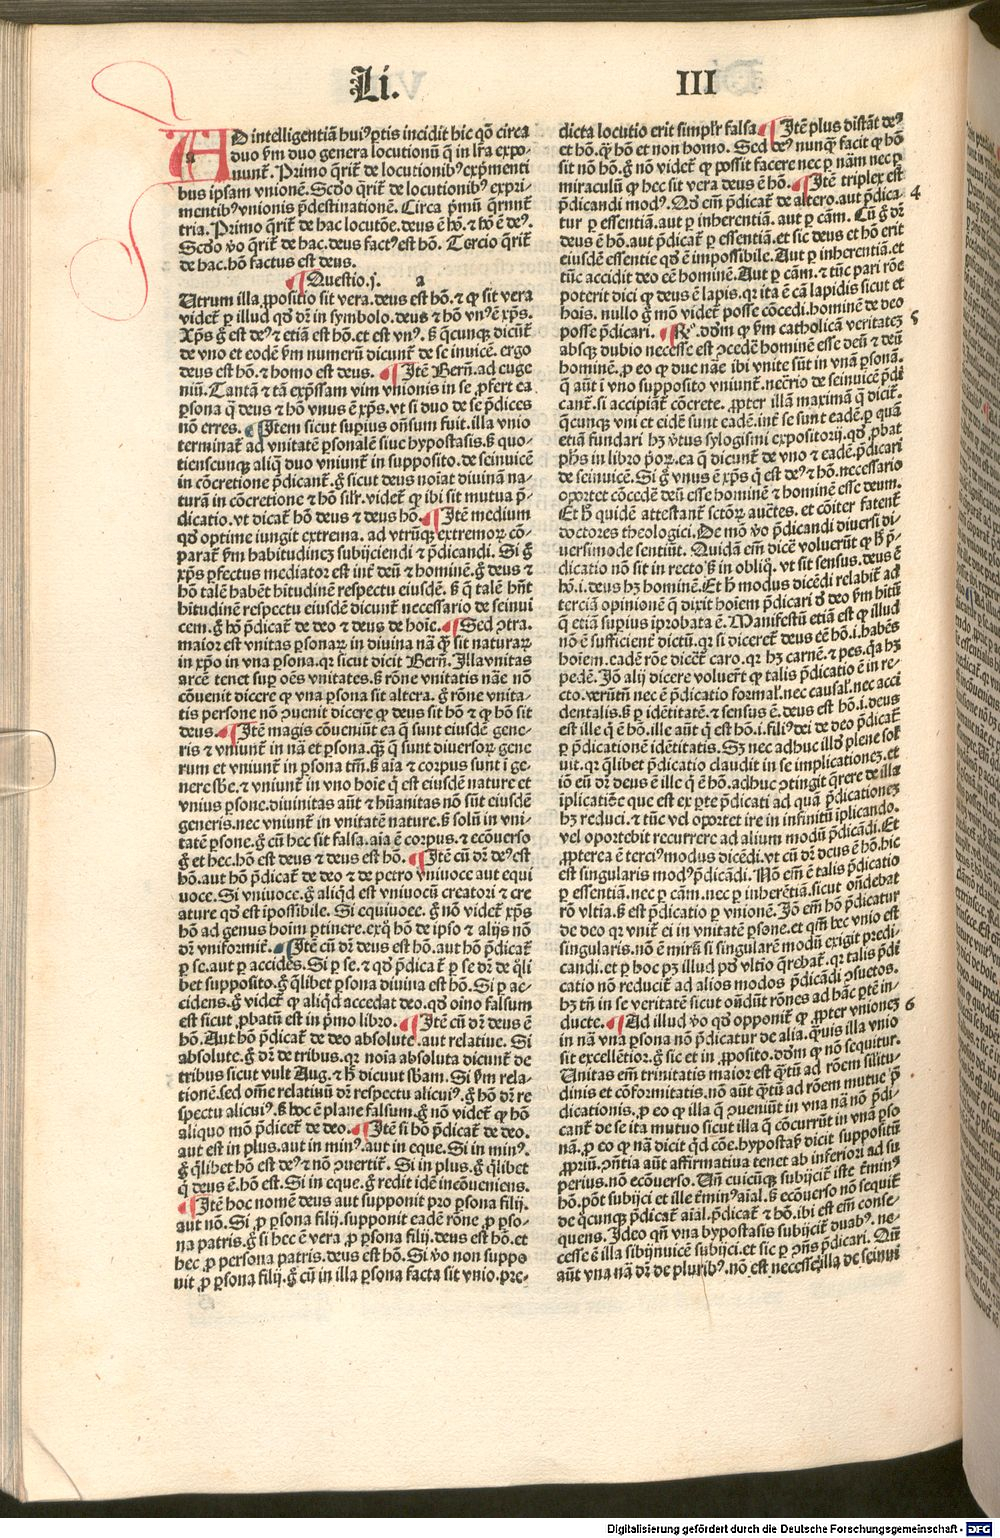 Li. III
AD intelligentiã huiꝰ ptis incidit hic qõ circa
duo ẜm duo genera locutionũ q̃ in lr̃a expo-
nunt̃. Primo q̃rit̃ de locutionibꝰ exp̃menti
bus ipsam vnionẽ. Scd̃o q̃rit̃ de locutionibꝰ expri-
mentibꝰ vnionis p̃destinationẽ. Circa p̃mũ q̃runt̃
tria. Primo q̃rit̃ de hac locutõe. deus ẽ hõ. ⁊ hõ ẽ deꝰ.
Scd̃o ṽo q̃rit̃ de hac. deus factꝰ est hõ. Tercio q̃rit̃
de hac. hõ factus est deus.
¶ Questio .j. a
Utrum illa ꝓpositio sit vera. deus est hõ. ⁊ ꝙ sit vera
videt̃ ꝑ illud qd̃ dr̃ in symbolo. deus ⁊ hõ vnꝰ ẽ xp̃s.
Xp̃s g̃ est deꝰ ⁊ etiã est hõ. et est vnꝰ. ẜ q̃cunqꝫ dicũt̃
de vno et eodẽ ẜm numerũ dicunt̃ de se inuicẽ. ergo
deus est hõ. ⁊ homo est deus. ¶ Itẽ Bern̄. ad euge
niũ. Tantã ⁊ tã exp̃ssam vim vnionis in se ꝓfert ea
ꝑsona q̃ deus ⁊ hõ vnus ẽ xp̃s. vt si duo de se p̃dices
nõ erres. ¶ Item sicut suꝑius on̄sum fuit. illa vnio
terminat̃ ad vnitatẽ ꝑsonalẽ siue hypostasis. ẜ quo-
tienscunqꝫ aliq̃ duo vniunt̃ in supposito. de seinuicẽ
in cõcretione p̃dicant̃. g̃ sicut deus noĩat diuinã na-
turã in cõcretione ⁊ hõ silr̃. videt̃ ꝙ ibi sit mutua p̃-
dicatio. vt dicat̃ hõ deus ⁊ deus hõ. ¶ Itẽ medium
qd̃ optime iungit extrema. ad vtrũqꝫ extremoꝝ cõ-
parat̃ ẜm habitudineꝫ subijciendi ⁊ p̃dicandi. Si g̃
xp̃s ꝑfectus mediator est int̃ deũ ⁊ hominẽ. g̃ deus ⁊
hõ talẽ habẽt hitudinẽ respectu eiusdẽ. ẜ q̃ talẽ hñt
hitudinẽ respectu eiusdẽ dicunt̃ necessario de seinui
cem. g̃ hõ p̃dicat̃ de deo ⁊ deus de hoĩe. ¶ Sed ↄtra.
maior est vnitas ꝑsonaꝝ in diuina nã q̃ sit naturaꝝ
in xp̃o in vna ꝑsona. qꝛ sicut dicit Bern̄. Illa vnitas
arcẽ tenet suꝑ oẽs vnitates. ẜ rõne vnitatis nãe nõ
cõuenit dicere ꝙ vna ꝑsona sit altera. g̃ rõne vnita-
tis persone nõ ↄuenit dicere ꝙ deus sit hõ ⁊ ꝙ hõ sit
deus. ¶ Itẽ magis cõueniũt ea q̃ sunt eiusdẽ gene-
ris ⁊ vniunt̃ in nã et ꝑsona. q̃ꝫ q̃ sunt diuersoꝝ gene
rum et vniunt̃ in ꝑsona tm̃. ẜ aĩa ⁊ corpus sunt ĩ ge-
nere sb̃e. ⁊ vniunt̃ in vno hoĩe q̃ est eiusdẽ nature et
vnius ꝑsone. diuinitas aũt ⁊ hũanitas nõ sũt eiusdẽ
generis. nec vniunt̃ in vnitatẽ nature. ẜ solũ in vni-
tatẽ ꝑsone. g̃ cũ hec sit falsa. aĩa ẽ corpus. ⁊ ecõuerso
g̃ et hec. hõ est deus ⁊ deus est hõ. ¶ Itẽ cũ dr̃ deꝰ est
hõ. aut hõ p̃dicat̃ de deo ⁊ de petro vniuoce aut equi
uoce. Si vniuoce. g̃ aliqd̃ est vniuocũ creatori ⁊ cre
ature qd̃ est ĩpossibile. Si equiuoce. g̃ nõ videt̃ xp̃s
hõ ad genus hoĩm ꝑtinere. ex q̃ hõ de ipso ⁊ alijs nõ
dr̃ vniformit̃. ¶ Itẽ cũ dr̃ deus est hõ. aut hõ p̃dicat̃
ꝑ se. aut ꝑ accidẽs. Si ꝑ se. ⁊ qd̃ p̃dicat̃ ꝑ se dr̃ de q̃li
bet supposito. g̃ q̃libet ꝑsona diuina est hõ. Si ꝑ ac-
cidens. g̃ videt̃ ꝙ aliqd̃ accedat deo. qd̃ oĩno falsum
est sicut ꝓbatũ est in p̃mo libro. ¶ Itẽ cũ dr̃ deus ẽ
hõ. Aut hõ p̃dicat̃ de deo absolute. aut relatiue. Si
absolute. g̃ dr̃ de tribus. qꝛ noĩa absoluta dicunt̃ de
tribus sicut vult Aug. ⁊ h̃ dicunt sb̃am. Si ẜm rela-
tionẽ. sed om̃e relatiuũ dr̃ respectu alicuiꝰ. g̃ hõ dr̃ re
spectu alicuiꝰ. ẜ hoc ẽ plane falsum. g̃ nõ videt̃ ꝙ hõ
aliquo mõ p̃dicet̃ de deo. ¶ Itẽ si hõ p̃dicat̃ de deo.
aut est in plus. aut in minꝰ. aut in eque. Si in minꝰ.
g̃ q̃libet hõ est deꝰ ⁊ nõ ↄuertit̃. Si in plus. g̃ q̃libet
q̃ deus ẽ. hõ est. Si in eque. g̃ redit idẽ incõueniens.
¶ Itẽ hoc nomẽ deus aut supponit pro ꝑsona filij.
aut nõ. Si ꝓ ꝑsona filij. supponit eadẽ rõne ꝓ ꝑso-
na patris. g̃ si hec ẽ vera ꝓ ꝑsona filij. deus est hõ. et
hec ꝓ persona patris. deus est hõ. Si ṽo non suppo
nit ꝓ ꝑsona filij. g̃ cũ in illa ꝑsona facta sit vnio. pre-
dicta locutio erit simplr̃ falsa. ¶ Itẽ plus distãt deꝰ
et hõ. q̃ hõ et non homo. Sed deꝰ nunq̃ facit ꝙ hõ
sit nõ hõ. g̃ nõ videt̃ ꝙ possit facere nec ꝑ nãm nec ꝑ
miraculũ ꝙ hec sit vera deus ẽ hõ. ¶ Itẽ triplex est
p̃dicandi modꝰ. Oẽ em̃ p̃dicat̃ de altero. aut p̃dica- 4
tur ꝑ essentiã. aut ꝑ inherentiã. aut ꝑ cãm. Cũ g̃ dr̃
deus ẽ hõ. aut p̃dicat̃ ꝑ essentiã. et sic deus et hõ erit
eiusdẽ essentie qd̃ ẽ impossibile. Aut ꝑ inherentiã. et
tũc accidit deo eẽ hominẽ. Aut ꝑ cãm. ⁊ tũc pari rõe
poterit dici ꝙ deus ẽ lapis. qꝛ ita ẽ cã lapidis sicut et
hoĩs. nullo g̃ mõ videt̃ posse cõcedi. hominẽ de deo
posse p̃dicari. ¶ Rꝰ. dõm ꝙ ẜm catholicã veritateꝫ 5
absqꝫ dubio necesse est ↄcedẽ hominẽ esse deũ ⁊ deũ
hominẽ. ꝓ eo ꝙ due nãe ibi vnite sũt in vna ꝑsona.
q̃ aũt ĩ vno supposito vniunt̃. nec̃rio de seinuicẽ p̃di
cant̃. si accipiãt̃ cõcrete. ꝓpter illã maximã q̃ dicit̃.
q̃cunqꝫ vni et eidẽ sunt eadẽ. int̃ se sunt eadẽ. ꝑ quã
etiã fundari hꝫ ṽtus sylogismi expositorij. qd̃ ꝓbat
ph̃s in libro p̃oꝝ. ea q̃ dicunt̃ de vno ⁊ eadẽ. p̃dicari
de seinuicẽ. Si g̃ vnus ẽ xp̃s q̃ est deꝰ ⁊ hõ. necessario
oportet cõcedẽ deũ esse hominẽ ⁊ hominẽ esse deum.
Et h̃ quidẽ attestant̃ sctõꝝ auc̃tes. et cõiter fatent̃
doctores theologici. De mõ ṽo p̃dicandi diuersi di-
uersimode sentiũt. Quidã em̃ dicẽ voluerũt ꝙ h̃ p̃-
dicatio nõ sit in rectoꝰ ẜ in obliq̃. vt sit sensus. deus ẽ
hõ. i. deus hꝫ hominẽ. Et h̃ modus dicẽdi relabit̃ ad
terciã opinionẽ q̃ dixit hoĩem p̃dicari d̃ deo ẜm hitũ
q̃ etiã suꝑius ĩprobata ẽ. Manifestũ etiã est ꝙ illud
nõ ẽ sufficient̃ dictũ. qꝛ si diceret̃ deus eẽ hõ. i. habẽs
hoĩem. eadẽ rõe dicet̃ caro. qꝛ hꝫ carnẽ. ⁊ pes. q̃a hꝫ
pedẽ. Iõ alij dicere voluer̃t ꝙ talis p̃dicatio ẽ in re-
cto. verũtñ nec ẽ p̃dicatio formal̃. nec causal̃. nec acci
dentalis. ẜ ꝑ idẽtitatẽ. ⁊ sensus ẽ. deus est hõ. i. deus
est ille q̃ ẽ hõ. ille aũt q̃ est hõ. i. filiꝰ dei de deo p̃dicat̃
ꝑ p̃dicationẽ idẽtitatis. Sꝫ nec adhuc illd̃ plene sol
uit. qꝛ q̃libet p̃dicatio claudit in se implicationeꝫ. et
iõ eũ dr̃ deus ẽ ille q̃ ẽ hõ. adhuc ↄtingit q̃rere de illa
ĩplicatiõe que est ex ꝑte p̃dicati ad quã p̃dicationeꝫ
hꝫ reduci. ⁊ tũc vel oportet ire in infinitũ ĩplicando.
vel oportebit recurrere ad alium modũ p̃dicãdi. Et
ꝓpterea ẽ terciꝰ modus dicẽdi. vt cũ dr̃ deus ẽ hõ. hic
est singularis modꝰ p̃dicãdi. Nõ em̃ ẽ talis p̃dicatio
ꝑ essentiã. nec ꝑ cãm. nec ꝑ inherẽtiã. sicut oñdebat
rõ vltĩa. ẜ est p̃dicatio ꝑ vnionẽ. Iõ em̃ hõ p̃dicatur
de deo qꝛ vnit̃ ei in vnitatẽ ꝑsone. et qm̃ hec vnio est
singularis. nõ ẽ mirũ si singularẽ modũ exigit predi-
candi. et ꝑ hoc pꝫ illud pd̃ vltĩo q̃rebat̃. qꝛ talis p̃di
catio nõ reducit̃ ad alios modos p̃dicãdi ↄsuetos.
hꝫ tñ in se veritatẽ sicut oñdũt rõnes ad hãc ꝑtẽ in-
ducte. ¶ Ad illud ṽo qd̃ opponit̃ ꝙ ꝓpter vnioneꝫ 6
in nã vna ꝑsona nõ p̃dicatur de alia. q̃uis illa vnio
sit excellẽtior. g̃ sic et in ꝓposito. dõm ꝙ nõ sequitur.
Unitas em̃ trinitatis maior est q̃tũ ad rõem silitu-
dinis et cõformitatis. nõ aũt q̃tũ ad rõem mutue p̃
dicationis. ꝓ eo ꝙ illa q̃ ↄueniũt in vna nã nõ p̃di-
cant̃ de se ita mutuo sicut illa q̃ cõcurrũt in vna ꝑso
nã. ꝓ eo ꝙ nã dicit qd̃ cõe. hypostas̃ dicit suppositũ
ꝓpriũ. ↄñtia aũt affirmatiua tenet ab inferiori ad su
perius. nõ ecõuerso. Uñ cuicũqꝫ subijcit̃ iste t̃minꝰ
hõ. põt subijci et ille t̃minꝰ aĩal. ẜ ecõuerso nõ sequit̃
de q̃cunqꝫ p̃dicat̃ aĩal. p̃dicat̃ ⁊ hõ. ibi est em̃ conse-
quens. Ideo qñ vna hypostasis subijcit̃ duabꝰ. ne-
cesse ẽ illa sibijnuicẽ subijci. et sic ꝑ ↄñs p̃dicari. Qñ
aũt vna nã dr̃ de pluribꝰ. nõ est necesse illa de seinui
Digitalisierung gefördert durch die Deutsche Forschungsgemeinschaft - DFG